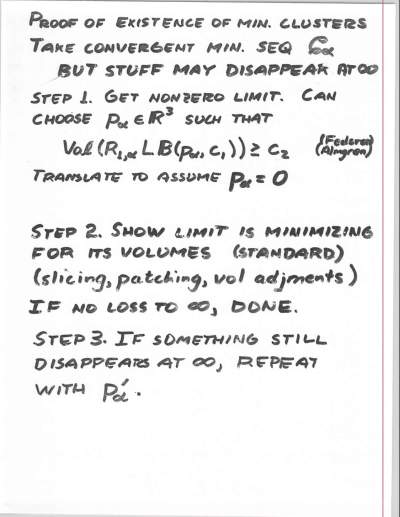 PROOF OF EXISTENCE OF MIN. CLUSTERS
TAKE CONVERGENT MIN. SEQ C_α
BUT STUFF MAY DISAPPEAR AT ∞
STEP 1. GET NONZERO LIMIT. CAN
CHOOSE p_α ∈ R³ SUCH THAT
Vol (R_{1,α} L B(p_α, c_1)) ≥ c_2 (Federer)
(Almgren)
TRANSLATE TO ASSUME p_α = 0
STEP 2. SHOW LIMIT IS MINIMIZING
FOR ITS VOLUMES (STANDARD)
(slicing, patching, vol adjments)
IF NO LOSS TO ∞, DONE.
STEP 3. IF SOMETHING STILL
DISAPPEARS AT ∞, REPEAT
WITH p'_α.